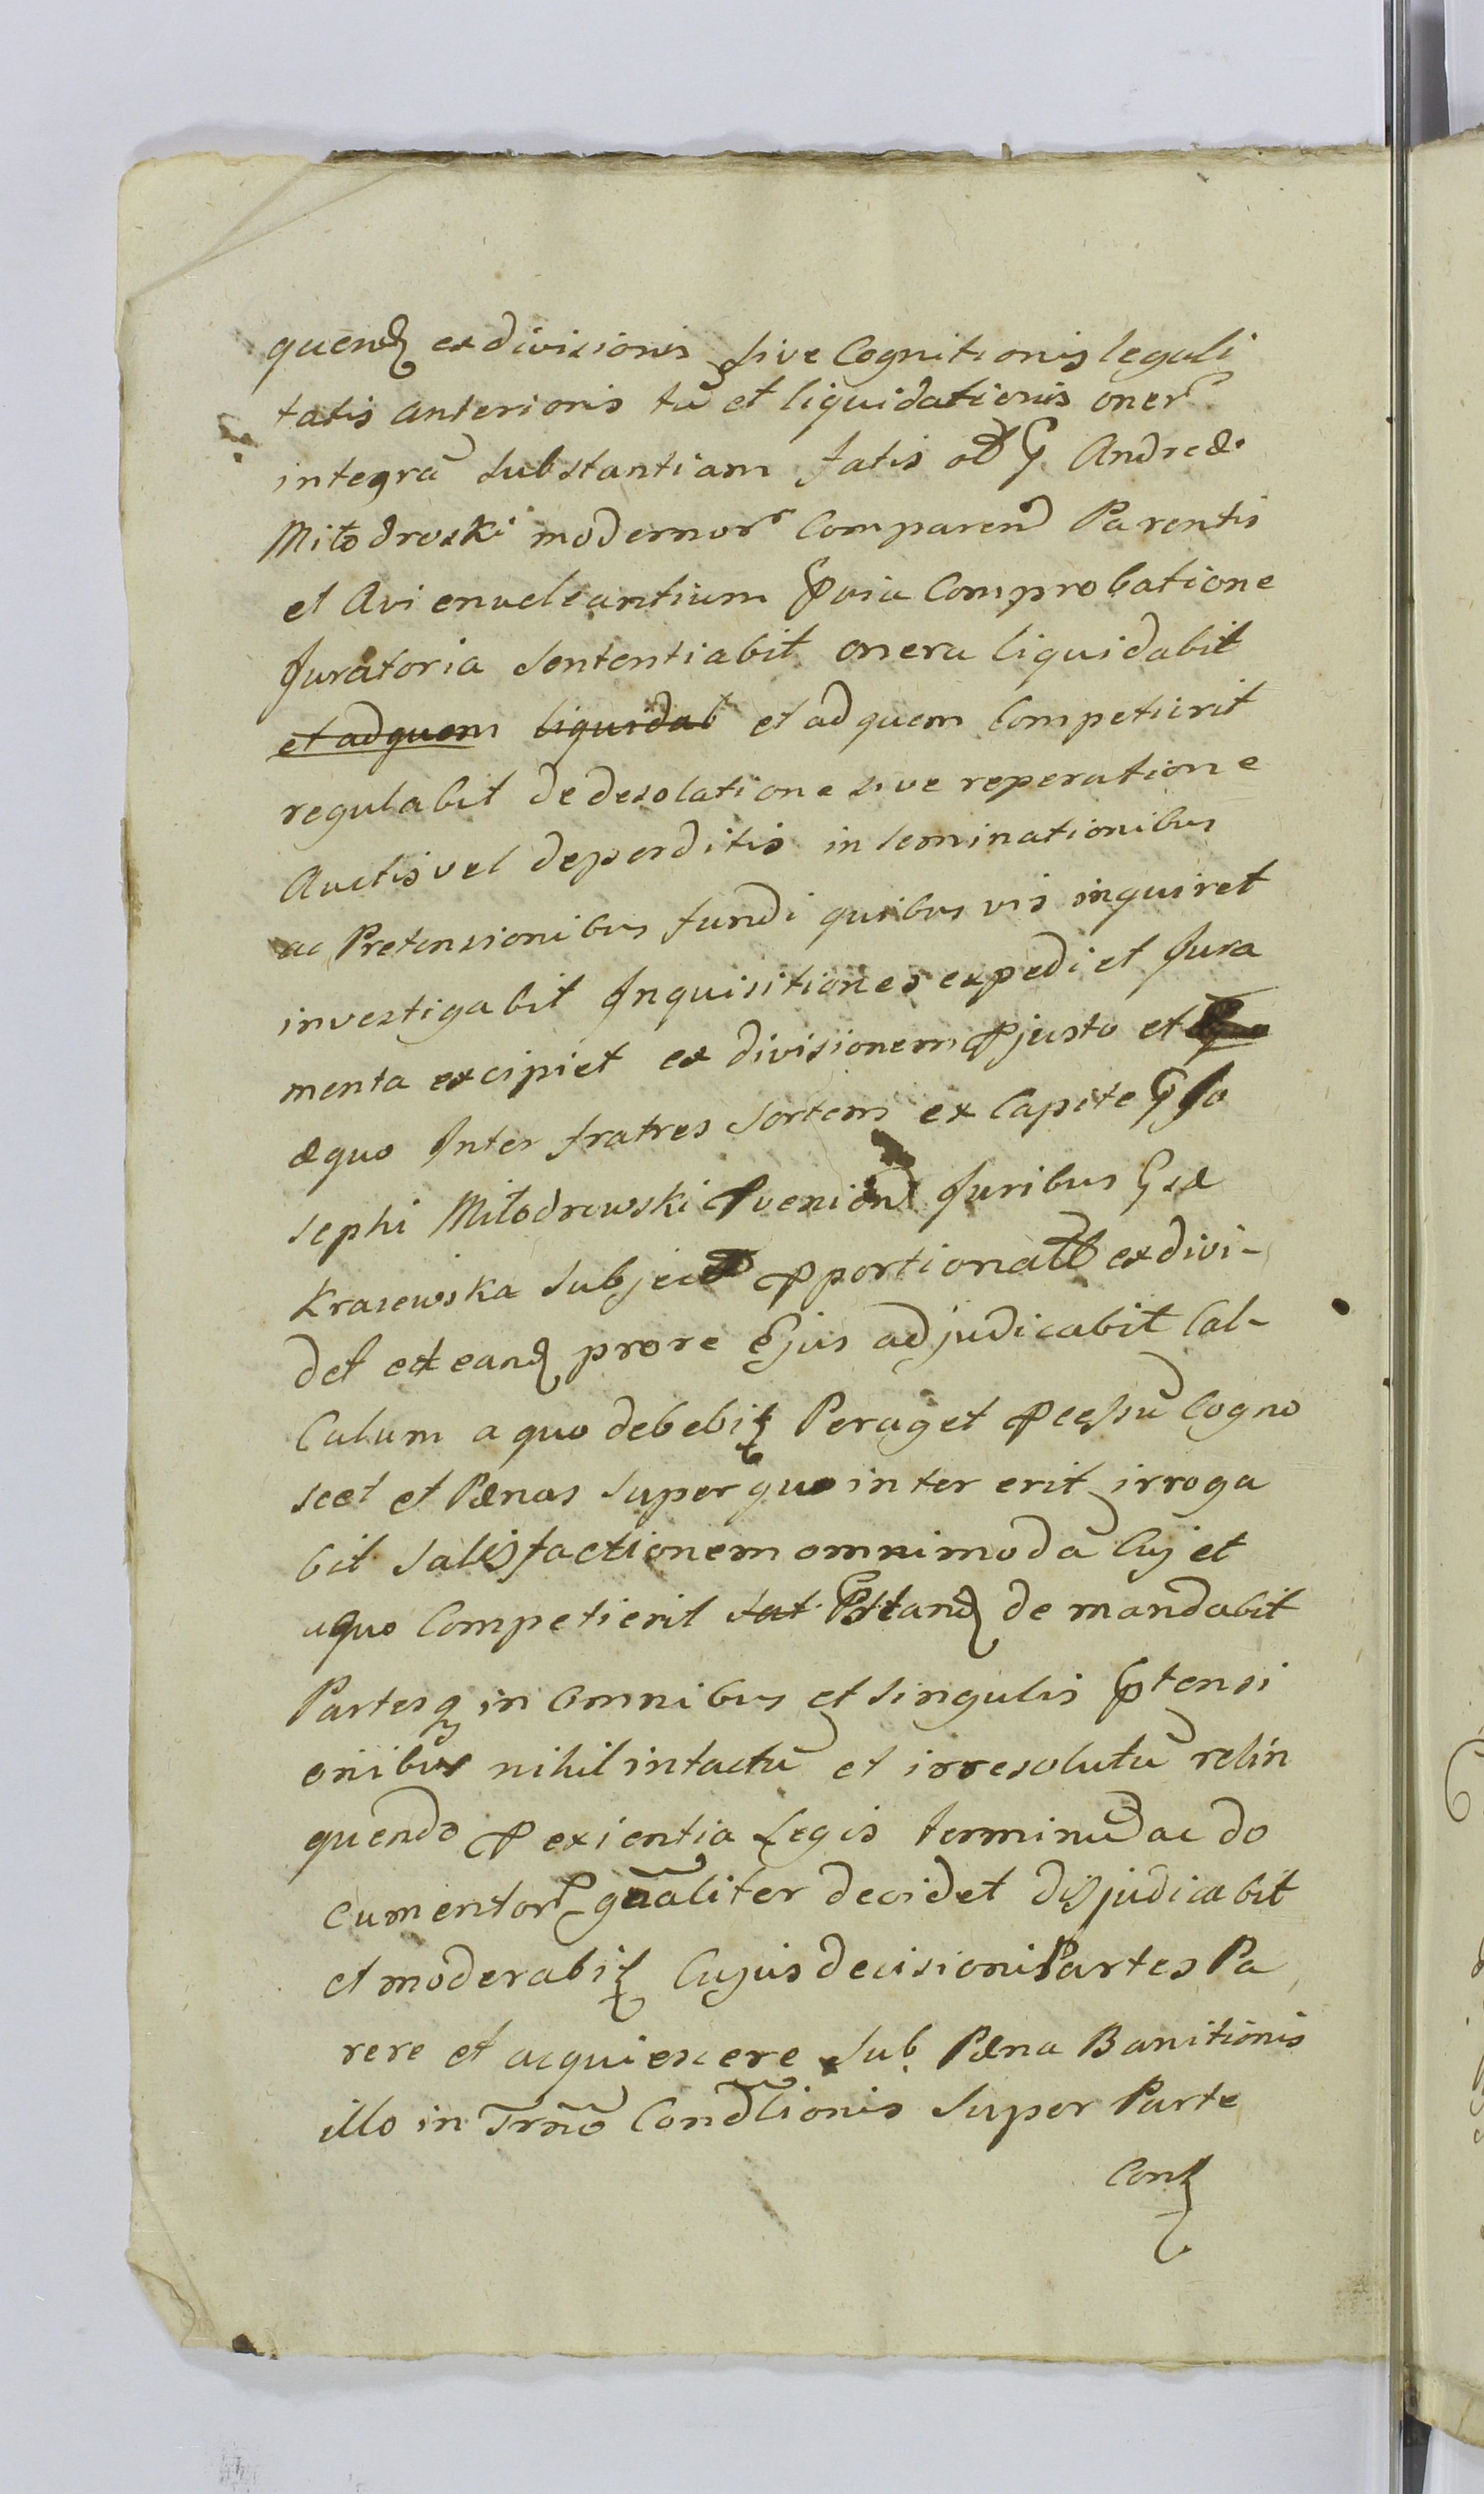 quend exdivisionis sive Cognitionis legali
tatis anterioris tũ et liquidationis oner
integrã substantiam fatis Andreæ
Miłodroski modernor Comparen Parentis
et Avi enucleantium pvia Comprobatione
Juratoria sententiabit onera liquidabit
et adquem liquidab et adquem Competierit
regulabit de desolatione sive reperatione
Auctis vel deperditis inseminationibus
ac Pretensionibus fundi quibus vis inquiret
investigabit Inquisitiones expediet Jura
menta excipiet exdivisionem pjusto et
æquo Inter fratres sortem ex Capite G Jo
sephi Miłodrowski pvenien Juribus Gsæ
Krasewska subject pportionat exdivi-
det et eand prore Ejus adjudicabit Cal-
Culum a quo debebit Peraget pcessũ Cogno
scet et Pænas super quo inter erit irroga
bit satisfactionem omnimodã Cuj et
aquo Competierit pstand de mandabit
Partesq in Omnibus et singulis ptensi
onibus nihil intactũ et irresolutũ relin
quendo p exientia Legis terminũ ac do
cumentor gnaliter decidet disjudicabit
et moderabit Cujus decisioni Partes Pa
rere et acquiescere sub Pæna Banitionis
illo in Trno Condlionis super Parte
Cont